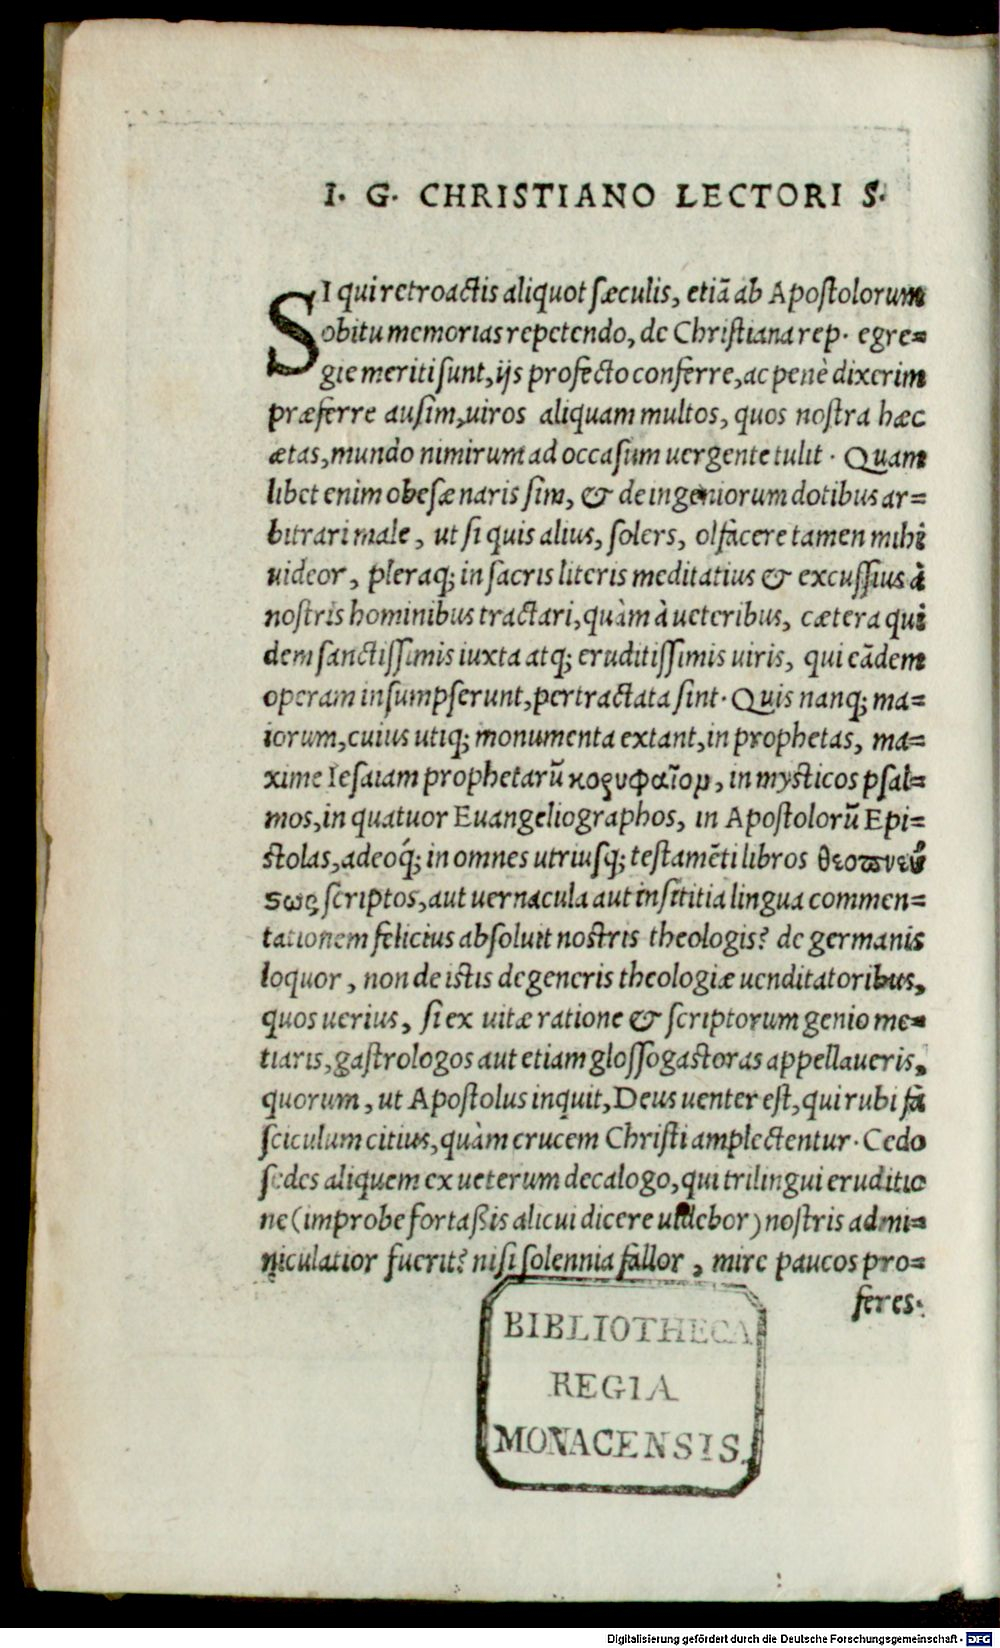 I. G. CHRISTIANO LECTORI S.
SI qui retroactis aliquot sæculis, etiã ab Apostolorum
obitu memorias repetendo, de Christiana rep. egre=
gie meriti sunt, ijs profecto conferre, ac penè dixerim
præferre ausim, uiros aliquam multos, quos nostra hæc
ætas, mundo nimirum ad occasum uergente tulit. Quam
libet enim obesæ naris sim, & de ingeniorum dotibus ar=
bitrari male, ut si quis alius, solers, olfacere tamen mihi
uideor, pleraq; in sacris literis meditatius & excussius à
nostris hominibus tractari, quàm à ueteribus, cætera qui
dem sanctissimis iuxta atq; eruditissimis uiris, qui eãdem
operam insumpserunt, pertractata sint. Quis nanq; ma=
iorum, cuius utiq; monumenta extant, in prophetas, ma=
xime Iesaiam prophetarũ κορυφαῖον, in mysticos psal=
mos, in quatuor Euangeliographos, in Apostolorũ Epi=
stolas, adeoq́; in omnes utriusq; testamẽti libros θεοπνεύ
σως scriptos, aut uernacula aut insititia lingua commen=
tationem felicius absoluit nostris theologis? de germanis
loquor, non de istis degeneris theologiæ uenditatoribus,
quos uerius, si ex uitæ ratione & scriptorum genio me=
tiaris, gastrologos aut etiam glossogastoras appellaueris,
quorum, ut Apostolus inquit, Deus uenter est, qui rubi fa
sciculum citius, quàm crucem Christi amplectentur. Cedo
sedes aliquem ex ueterum decalogo, qui trilingui eruditio
ne (improbe fortaßis alicui dicere uidebor) nostris admi=
niculatior fuerit? nisi solennia fallor, mire paucos pro=
feres.
BIBLIOTHECA
REGIA
MONACENSIS.
Digitalisierung gefördert durch die Deutsche Forschungsgemeinschaft - DFG